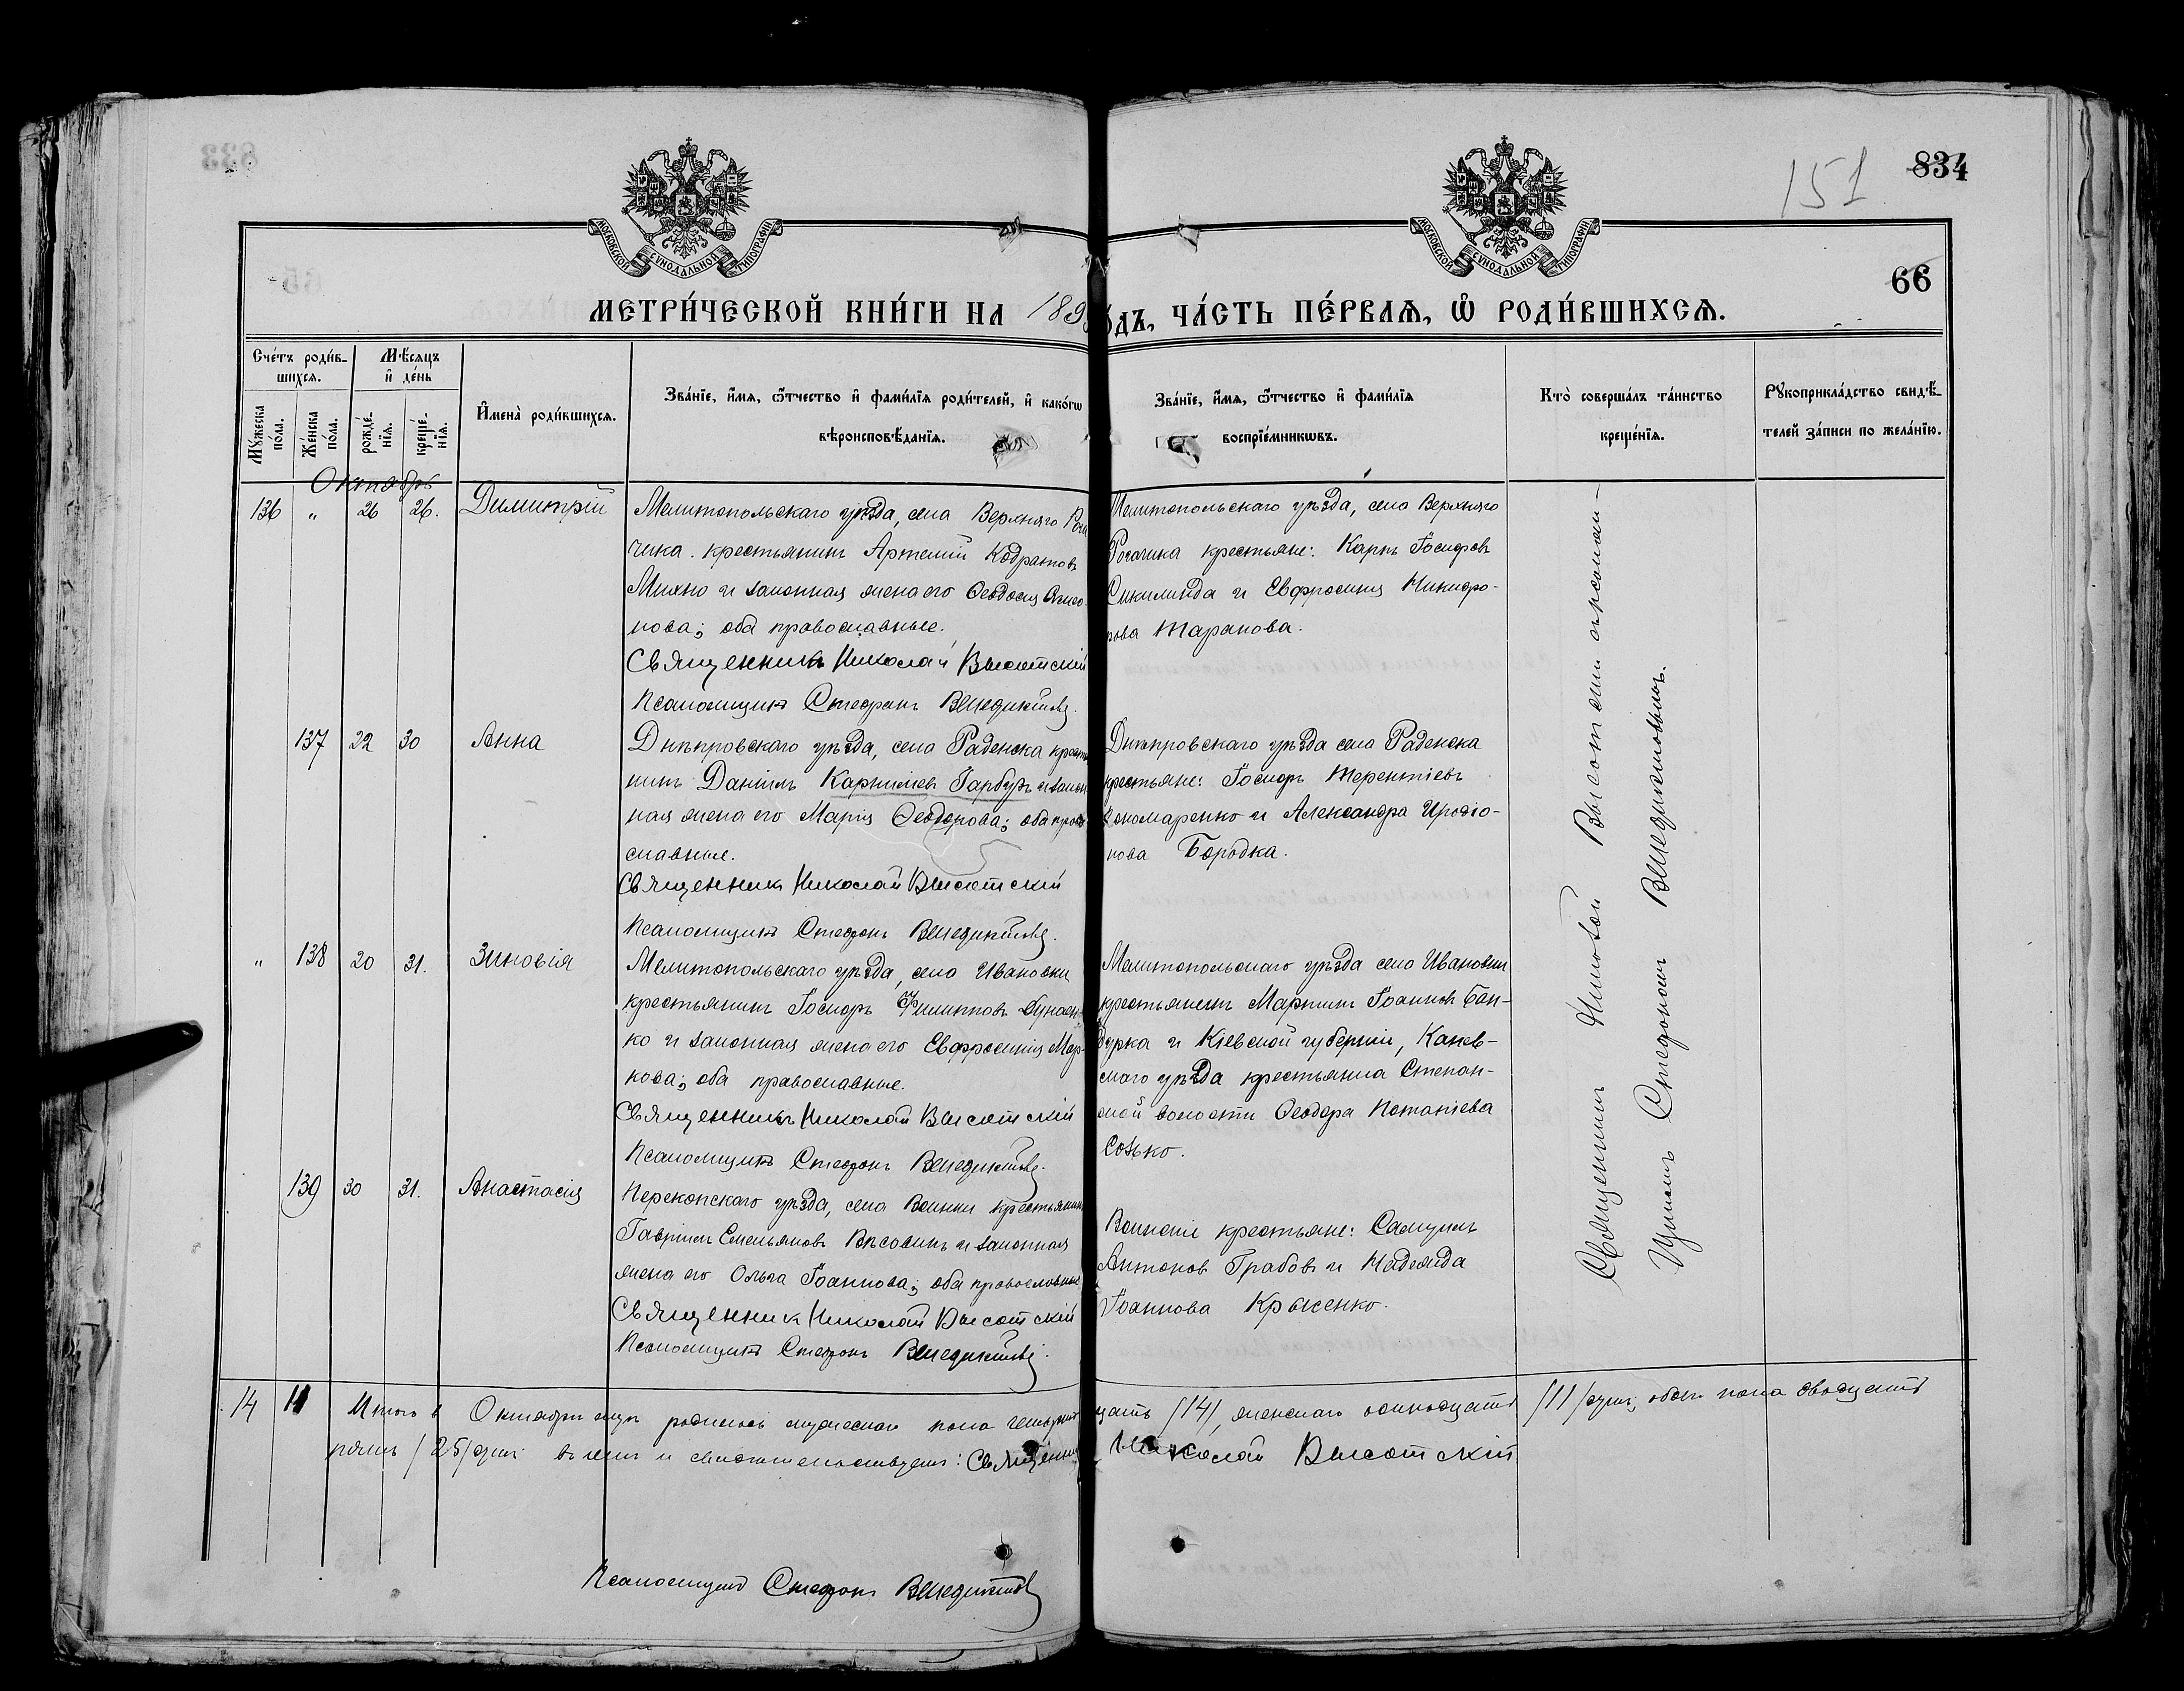 833
151
834
66
МОСКОВСКОЙ СУНОДАЛЬНОЙ ТИПОГРАФІИ
МОСКОВСКОЙ СУНОДАЛЬНОЙ ТИПОГРАФІИ
МЕТРИ́ЧЕСКОЙ КНИ́ГИ НА 189 ДЪ, ЧА́СТЬ ПЕ́РВАѦ, Ѿ РОДИ́ВШИХСѦ.
Сче́тъ роди́в-
шихсѧ.
Мѣ́сяцъ
и҆ де́нь
Мꙋжеска
по́ла.
Же́нска
по́ла.
рожде́-
нїѧ.
креще́-
нїѧ.
И҆мена̀ роди́вшихсѧ.
Зва́нїе, и҆́мѧ, ѻ҆́тчество и҆ фами́лїѧ роди́телей, и҆ како́гѡ
вѣроисповѣ́данїѧ.
Зва́нїе, и҆́мѧ, ѻ҆́тчество и҆ фами́лїѧ
воспрїе́мникѡвъ.
Кто̀ соверша́лъ та́инство
креще́нїѧ.
Рꙋкоприкла́дство свидѣ́-
телей за́писи по жела́нїю.
Октябрь
136 " 26 26. Димитрій
Мелитопольскаго уѣзда, села Верхняго Рога
чика. крестьянинъ Артемій Кодратовъ
Михно и законная жена его Ѳеодосія
нова; оба православные.
Священникъ Николай Высотскій
Псаломщикъ Стефанъ Венедиктовъ.
Мелитопольскаго уѣзда, села Верхняго
Рогачика крестьяне: Карпъ Іосифовъ
и Евфросинія Никифо-
рова Таранова.
137 22 30 Анна
Днѣпровскаго уѣзда, села Раденска кресть
нинъ Даніилъ Карниліевъ Гарбузъ и закон
ная жена его Марія Ѳеодорова; оба право
славные.
Священникъ Николай Высотскій
Псаломщикъ Стефанъ Венедиктовъ.
Днѣпровскаго уѣзда села Раденска
крестьяне: Іосифъ Терентіевъ
Пономаренко и Александра Иродіо-
нова Бородка.
" 138 20 31. Зиновія
Мелитопольскаго уѣзда, села Ивановки
крестьянинъ Іосифъ Филипповъ Дунаен-
ко и законная жена его Евфросинія Мар-
кова; оба православные.
Священникъ Николай Высотскій
Псаломщикъ Стефанъ Венедиктовъ.
Мелитопольскаго уѣзда села Ивановки
крестьянинъ Мартинъ Іоанновъ Бан-
дурка и Кіевской губерніи, Канев-
скаго уѣзда крестьянка Степан-
ской волости Ѳеодора Потапіева
Созько.
139 30 31. Анастасія
Перекопскаго уѣзда, села Воинки крестьянинъ
Гавріилъ Емельяновъ и законная
жена его Ольга Іоаннова; оба православные
Священникъ Николай Высотскій
Псаломщикъ Стефанъ Венедиктовъ.
Воинскіе крестьяне: Самуилъ
Антоновъ Грабовъ и Надежда
Іоаннова Крысенко.
Священникъ Николай Высотскій съ псалом-
щикомъ Стефаномъ Венедиктовымъ.
14 11 Итого въ Октябрѣ мѣс. родилось мужескаго пола четырнад цать /14/, женскаго одинадцать /11/ душъ, обоего пола двадцать
пять /25/ душъ въ чемъ и свидѣтельствуемъ: Священникъ Николай Высотскій
Псаломщикъ Стефанъ Венедиктовъ